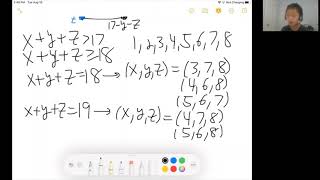 z 17-y-z
x+y+z>17 1,2,3,4,5,6,7,8
x+y+z≥18
x+y+z=18→(x,y,z)=(3,7,8)
(4,6,8)
(5,6,7)
x+y+z=19→(x,y,z)=(4,7,8)
(5,6,8)